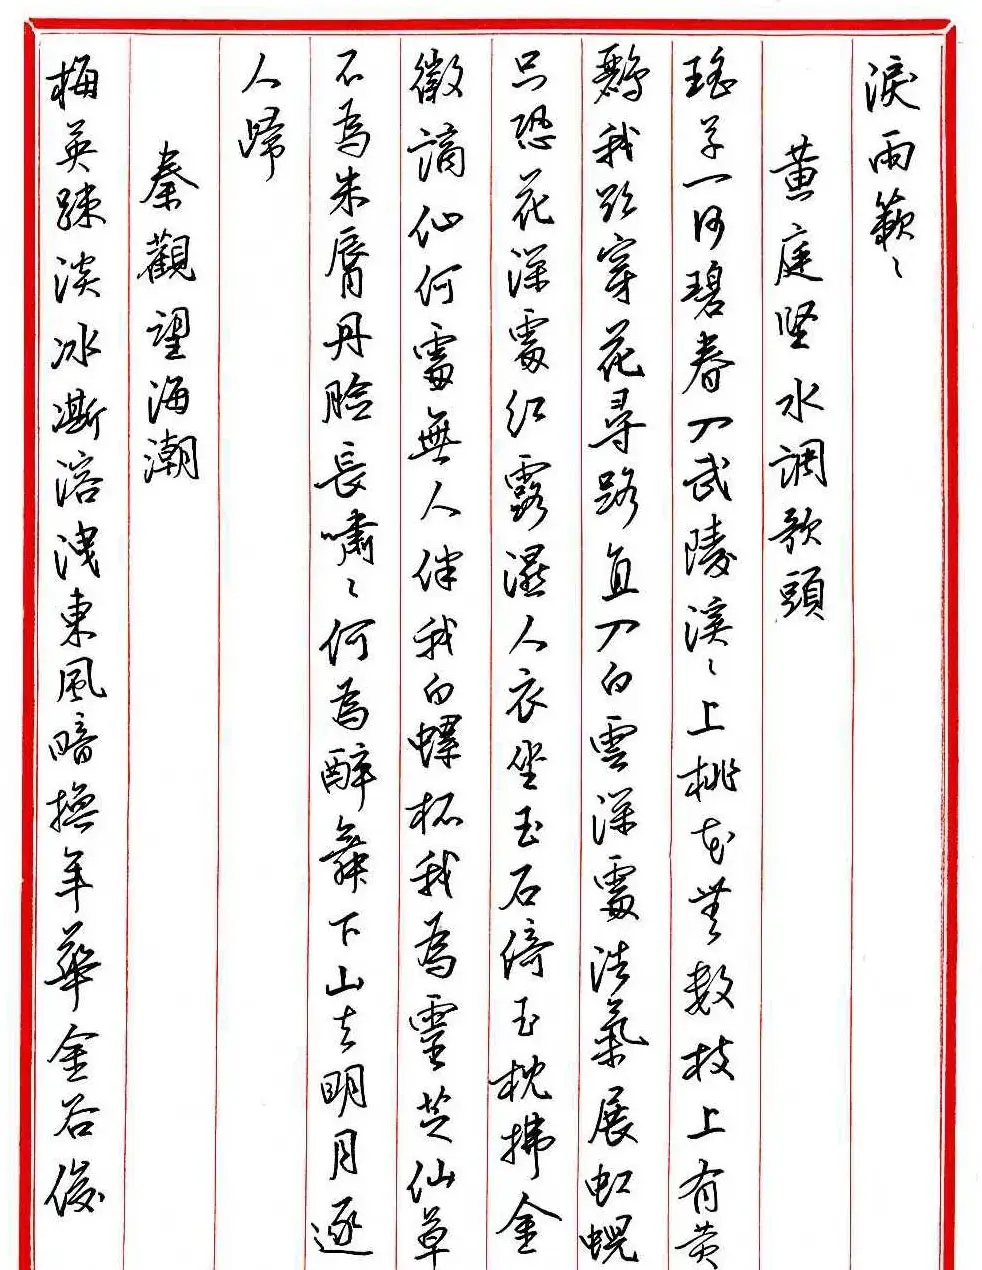 淚雨簌〻
黄庭坚 水調歌頭
瑤草一何碧春入武陵溪〻上桃花無數枝上有黄
鸝我欲穿花尋路直入白雲深處浩氣展虹蜺
只恐花深處紅露濕人衣坐玉石倚玉枕拂金
徽謫仙何處無人伴我白螺杯我為靈芝仙草
不為朱脣丹臉長嘯〻何為醉舞下山去明月逐
人歸
秦觀望海潮
梅英疎淡冰澌溶洩東風暗換年華金谷俊